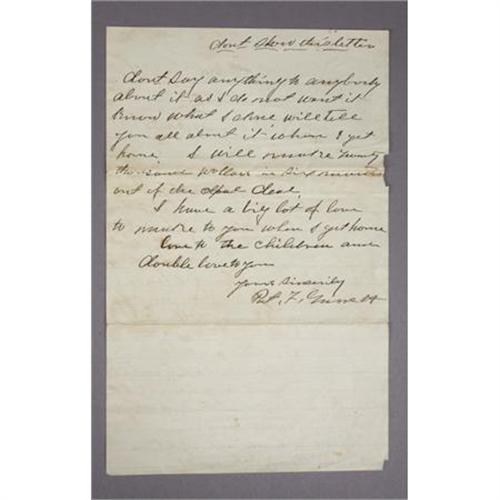 dont show this letter
dont say anything to anybody
about it as I do not want it
know what I done will tell
you all about it when I get
home. I will make twenty
thousand dollars in six months
out of the deal.
I have a big lot of love
to make to you when I get home
love to the children and
double love to you
yours sincerily
Pat. F. Garrett